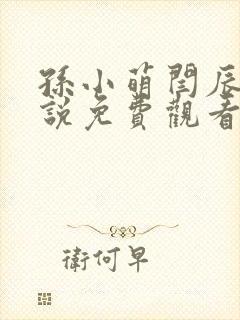 孫小萌閆辰
說免費觀看
衛何早